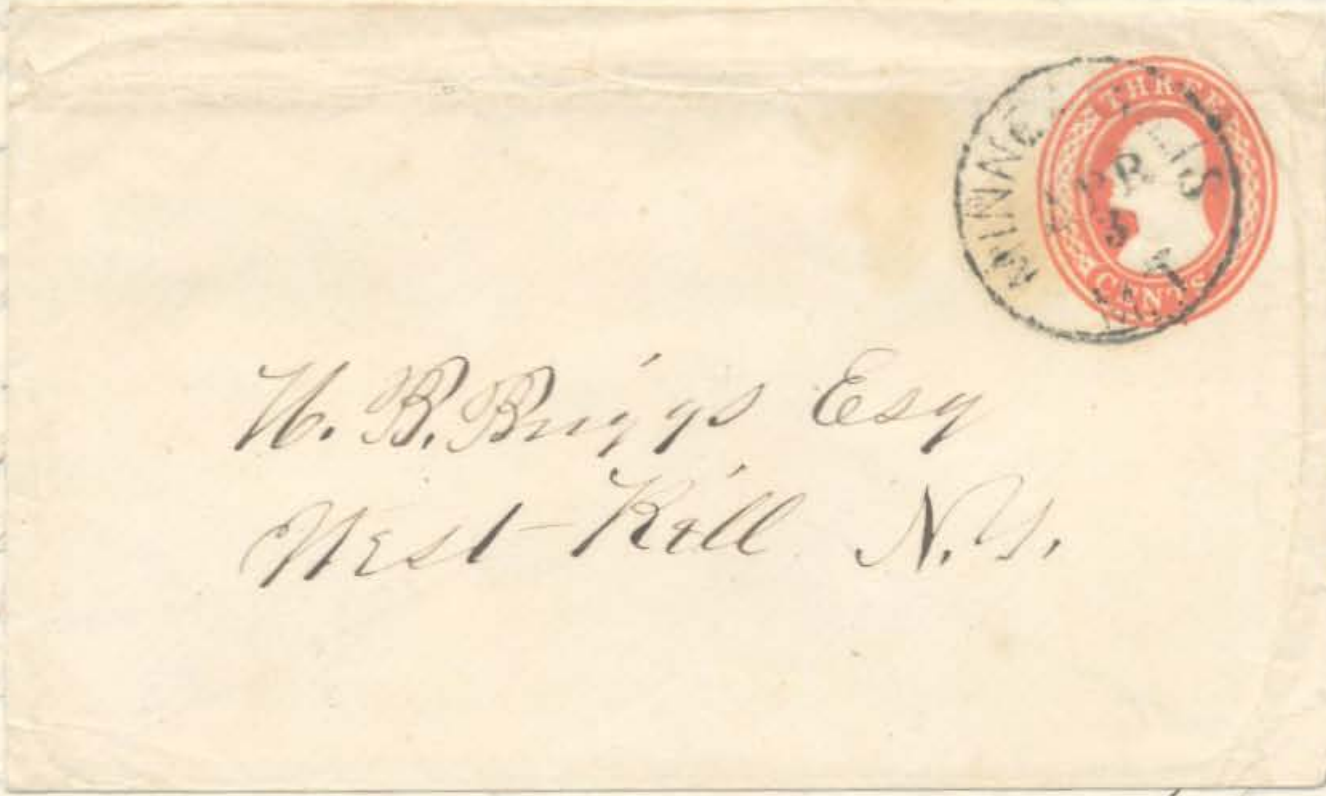 THREE
CENTS
MINNE
APR
3
H. B. Briggs Esq
West-Kill N.Y.